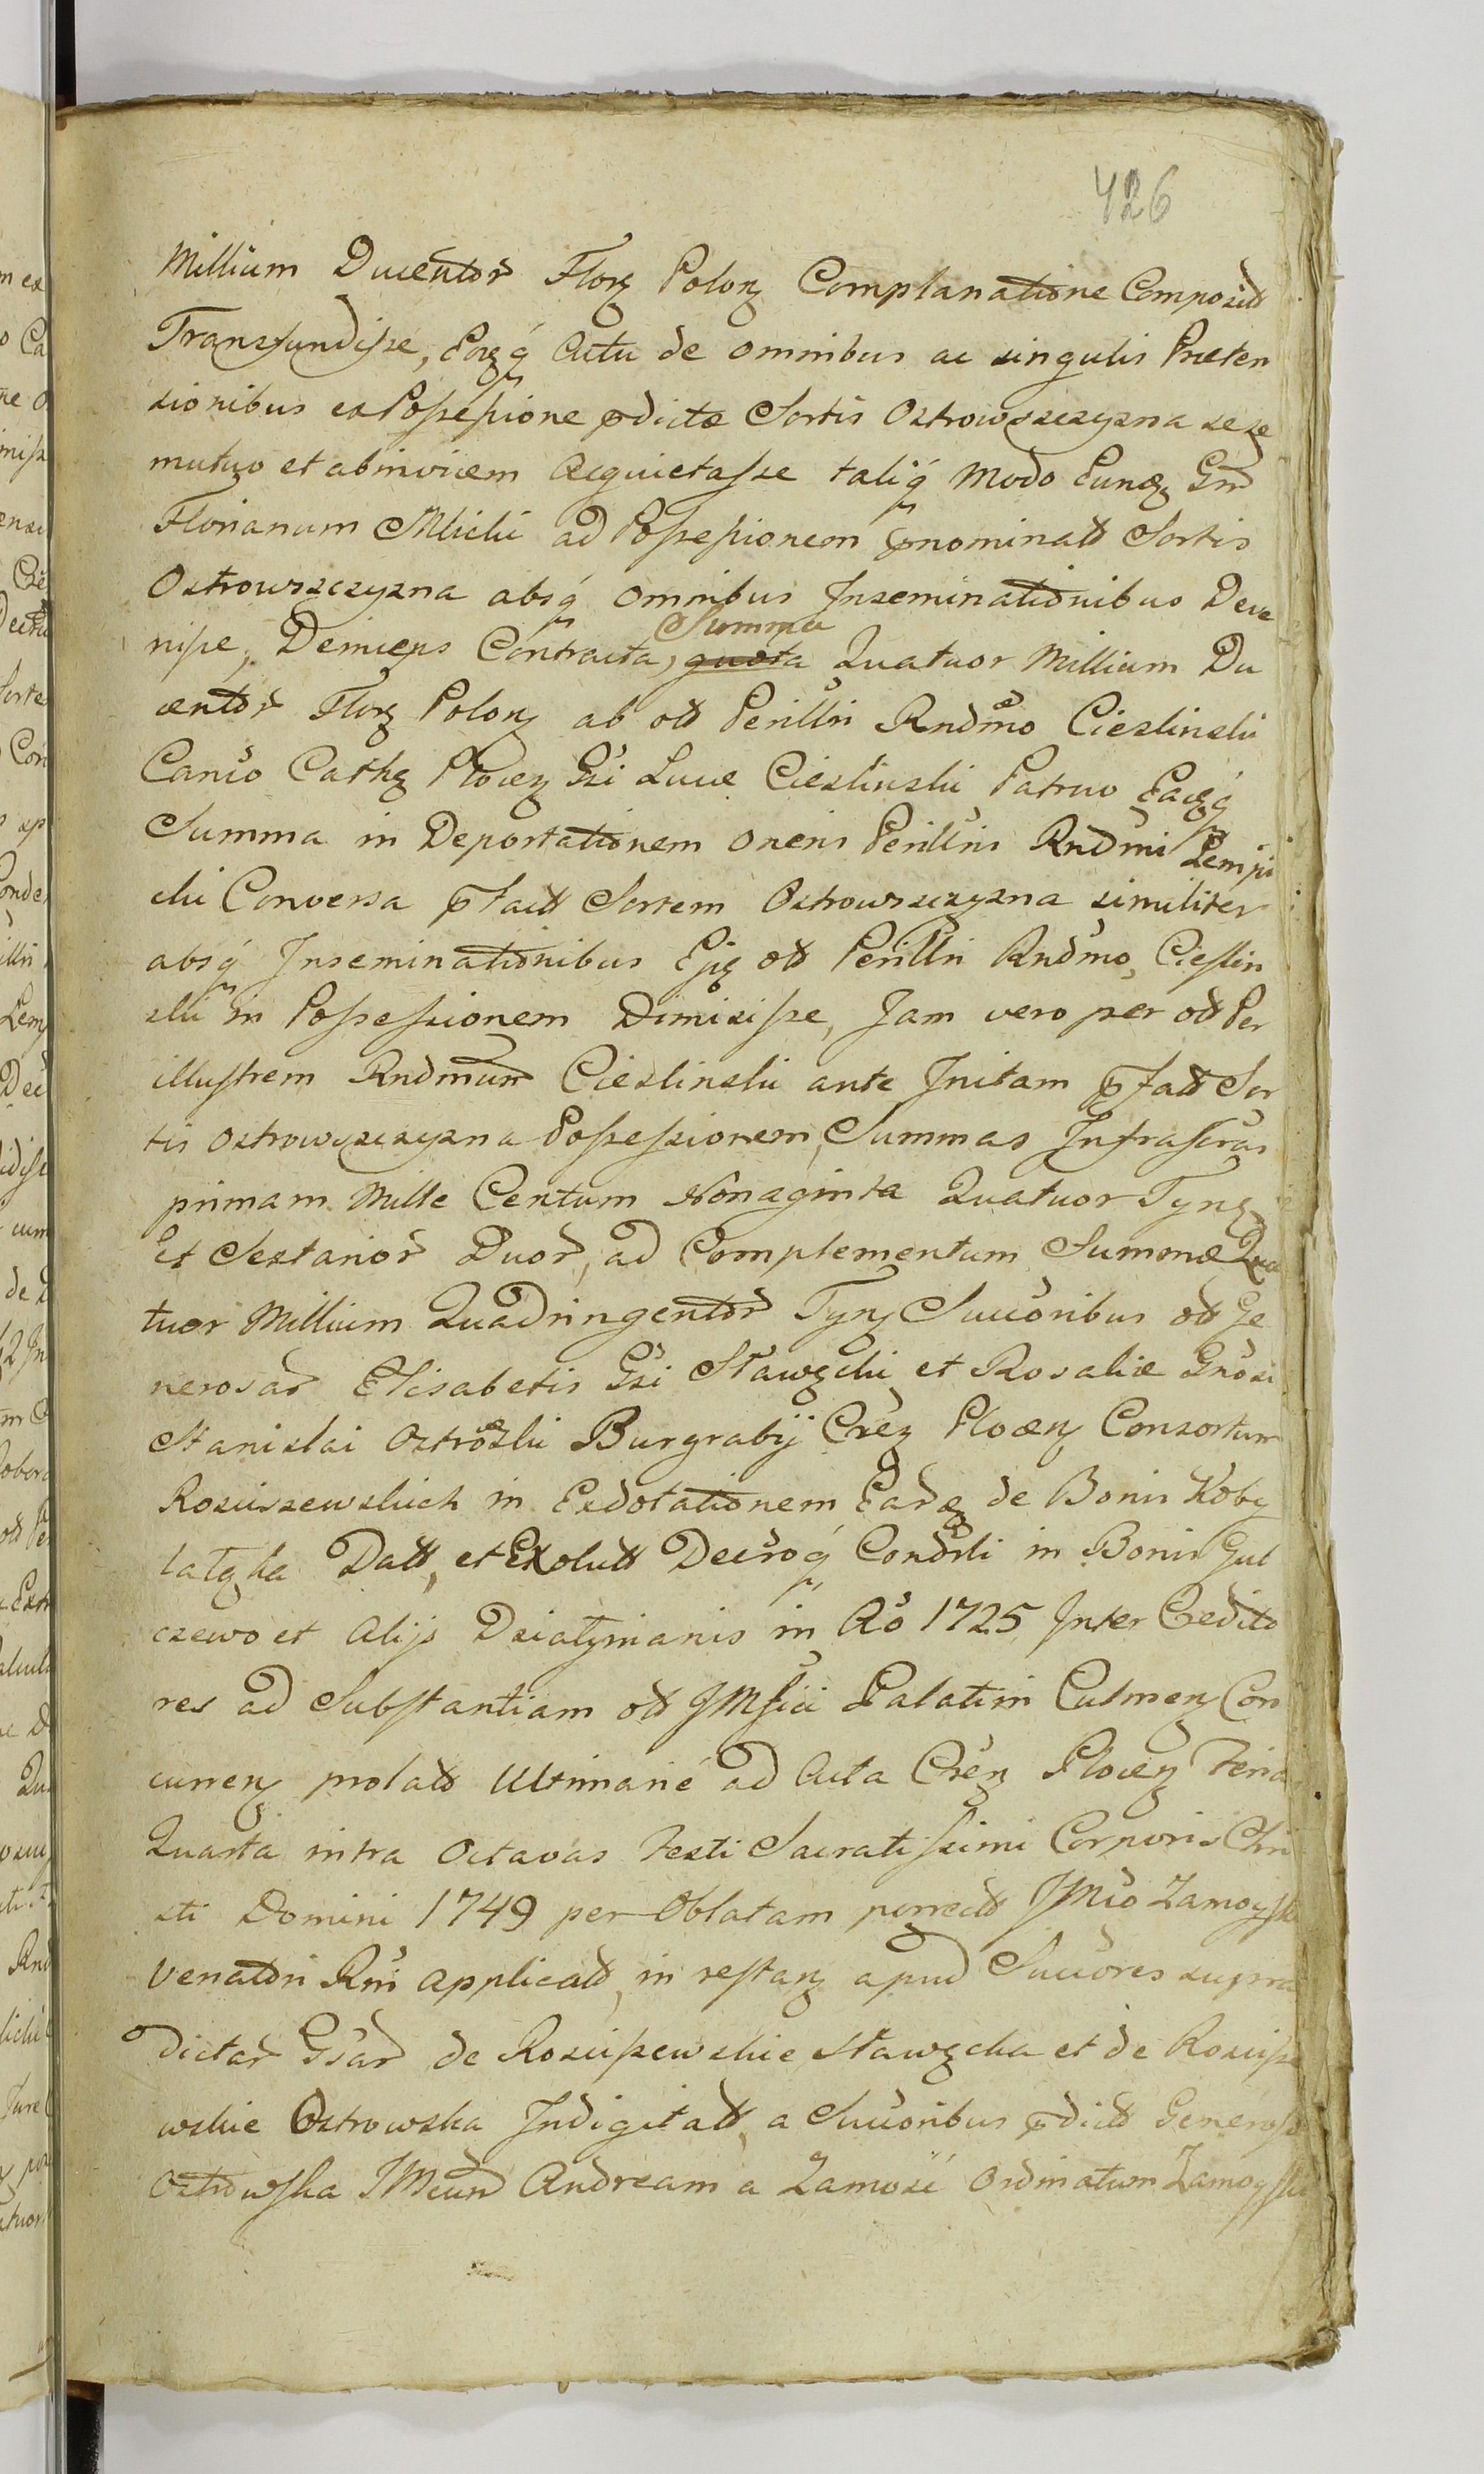 426
Millium Ducentor Florz Polonz Complanatione Composit
Transfundisse, Eorzq́ Actu de omnibus ac singulis Præten
sionibus ex Possessione pdictæ Sortis Ostrowszczyzna sese
mutuo et abinvicem Acquietasse taliq́ Modo Eundz Gnr
Florianum Mlicki ad Possessionem pnominatt Sortis
Ostrowszczyzna absq́ omnibus Inseminationibus Deve
nisse, Demieps Contracta, Summa quota Quatuor Millium Du
centor Florz Polonz ab ott Perillri Rndmo Cieslinski
Canco Cathz Plocenz Gsi Lucæ Cieslinski Patruo Eaqzq́
Summa in Deportationem oneris Perillris Rndmi Lempi
cki Conversa pfactt Sortem Ostrowszczyzna similiter
absq́ Inseminationibus Ejz ott Perillri Rndmo, Cieslin
ski in Possessionem Dimisisse, Jam vero per ott Per
illustrem Rndmum Cieslinski ante Initam pfatt Sor
tis Ostrowszczyzna Possessionem, Summas Infrascras
primam Mille Centum Nonaginta Quatuor Tynz
Et Sextarior Duor, ad Complementum Summæ Qua
tuor Millium Quadringentor Tynz Succoribus ott Ge
nerosar Elisabetis Gsi Sławęcki et Rosaliæ Gnosi
Stanislai Ostroski Burgrabij Crez Plocenz Consortum
Rosciszewskich in Exdotationem Eardz de Bonis Koby
latzka Datt, et Exolutt Decroq́ Condsti in Bonis Gul
czewo et Alijs Dziatynianis in Ao 1725 Inter Credito
res ad Substantiam ott JMsici Palatini Culmenz Con
currenz prolatt Ultimarie ad Acta Crenz Plocenz Feria
Quarta intra Octavas Festi Sacratissimi Corporis Chri
sti Domini 1749 per Oblatam porrectt JMco Zamoyski
Venatori Rni Applicatt, in restanz apud Succores supra
dictar Gsar de Rosciszewskie Sławęcka et de Roscisze
wskie Ostrowska Indigitatt, a Succoribus pdictt Generosæ
Ostrowska JMcum Andream a Zamosc Ordinatum Zamoyski